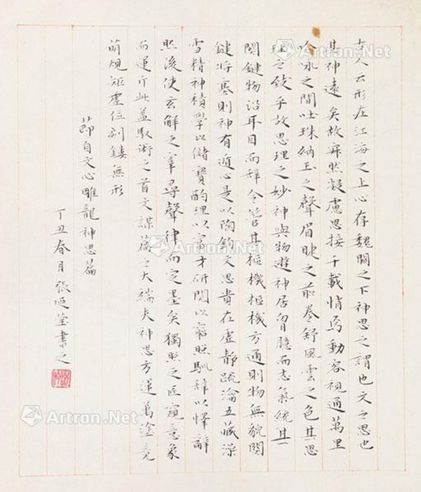 古人云形在江海之上心存魏闕之下神思之謂也文之思也
其神遠矣故寂然凝慮思接千載悄焉動容視通萬里
吟詠之間吐珠納玉之聲眉睫之前卷舒風雲之色其思
理之致乎故思理之妙神與物遊神居胸臆而志氣統其
關鍵物沿耳目而辭令管其樞機樞機方通則物無貌關
鍵將塞則神有遁心是以陶鈞文思貴在虛靜疏瀹五藏澡
雪精神積學以儲寶酌理以富才研閱以窮照馴辭以懌辭
然後使玄解之宰尋聲律而定墨矣獨照之匠窺意象
而運斤此蓋馭術之首文謀篇之大端夫神思方運萬塗競
萌規矩虛位刻鏤無形
節自文心雕龍神思篇
丁丑春月張廷堂書之
Artron.Net
Artron.Net
Artron.Net
Artron.Net